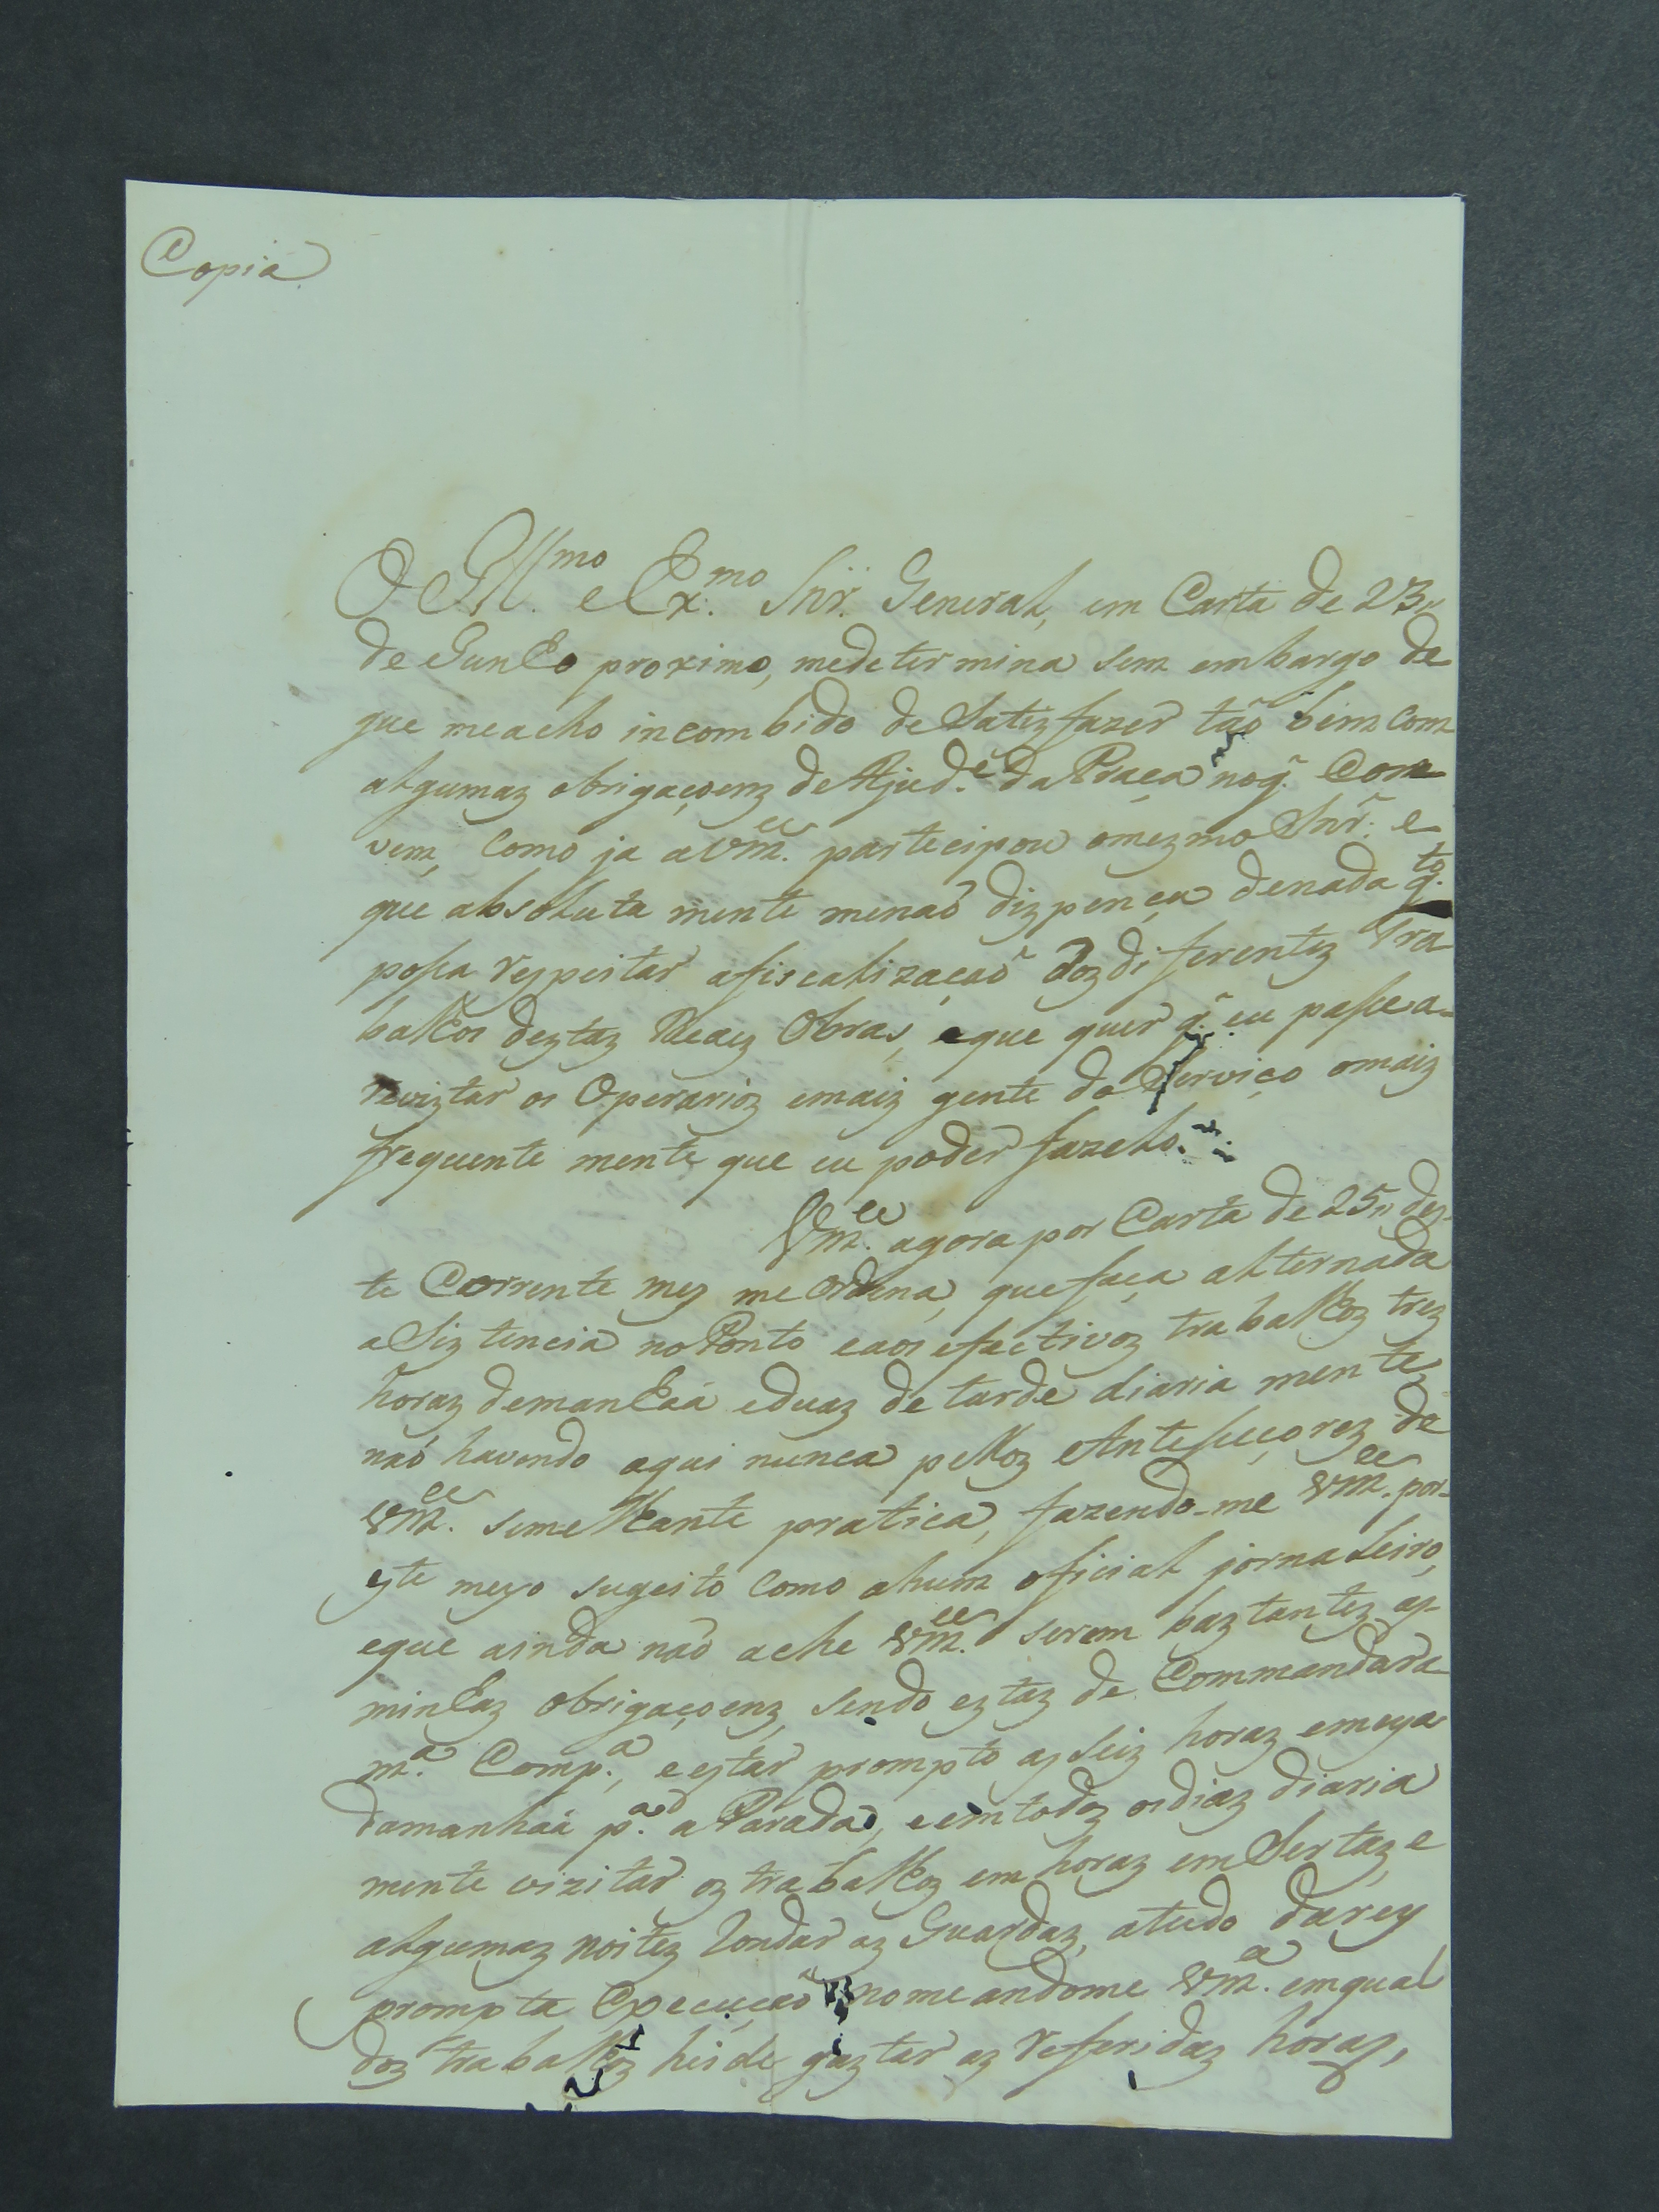 Copia.
O Ill.mo e Ex.mo Snr. General, em Carta de 23,,
de Junho proximo, medetermina sem embargo de
que meacho incombido de Satizfazer taõ bem com
algumaz obrigaçoenz de Ajud.e da Praça noq.~ Con
vem, como ja a Vm.ce partecipou omezmo Snr. e
que absoluta mente menaõ dizpença denada q.to
possa respeitar afiscalizaçaõ doz diferentez Tra
balhos deztaz Reaez Obras, eque quer q.~ eu passe a-
reviztar os Operarioz emaiz gente do Serviço omaiz
frequente mente que eu poder fazelo.
Vm.ce agora por Carta de 25,, dez-
te Corrente mez me ordena, que faça alternada
a Siztencia no Ponto eaos efectivoz trabalhoz trez
horaz demanhaá eduaz de tarde diaria mente,
naõ havendo aqui nunca pelloz Anteseçorez de
Vm.ce semelhante pratica, fazendo-me Vm.ce por-
este meyo sugeito como ahum oficial jornaleiro,
eque ainda naõ ache Vm.ce serem baztantez as-
minhaz obrigaçoenz, sendo eztaz de Commandar a
m.a Comp.a, e estar prompto as seiz horaz emeya
damanhaá p.a a Parada, e emtodoz osdiaz diaria
mente vizitar oz trabalhoz em horaz emSertaz, e
algumaz noitez Rondar az Guardaz, atudo darey
prompta Execuçaõ nomeandome Vm.ce emqual
doz trabalhoz heide gaztar az referidaz horaz,